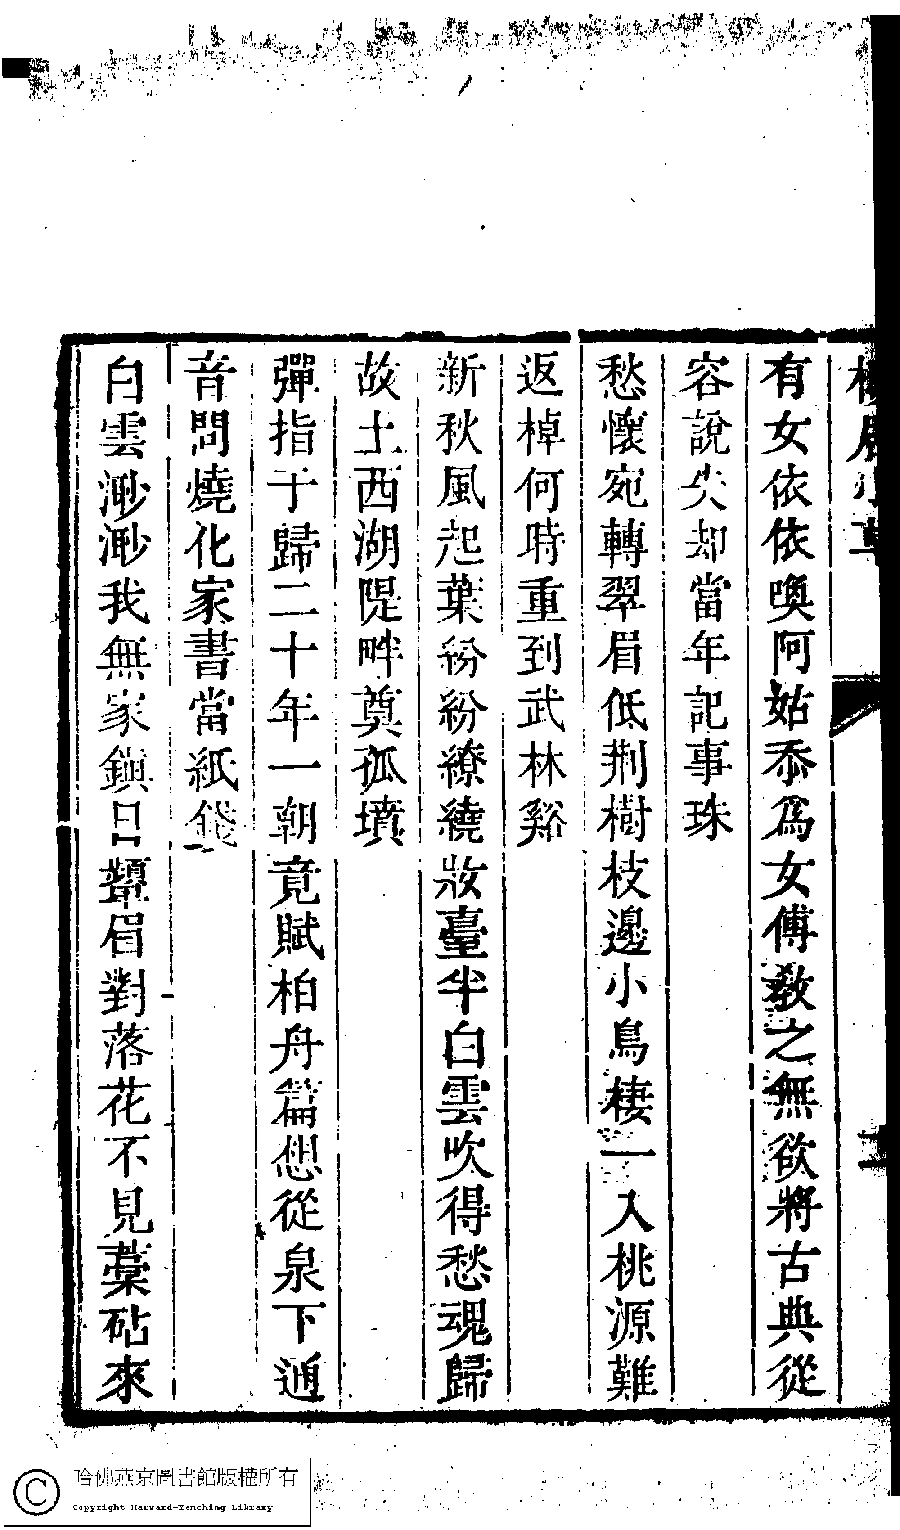 有女依依喚阿姑忝爲女傅敎之無欲將古典從
容說失却當年記事珠
愁懷宛轉翠眉低荆樹枝邊小鳥棲一入桃源難
返棹何時重到武林谿
新秋風起葉紛紛繚繞妝臺半白雲吹得愁魂歸
故土西湖隄畔奠孤墳
彈指于歸二十年一朝竟賦柏舟篇想從泉下通
音問燒化家書當紙錢
白雲渺渺我無家鎭日顰眉對落花不見藁砧來
哈佛燕京圖書館版權所有
Copyright Harvard-Yenching Library